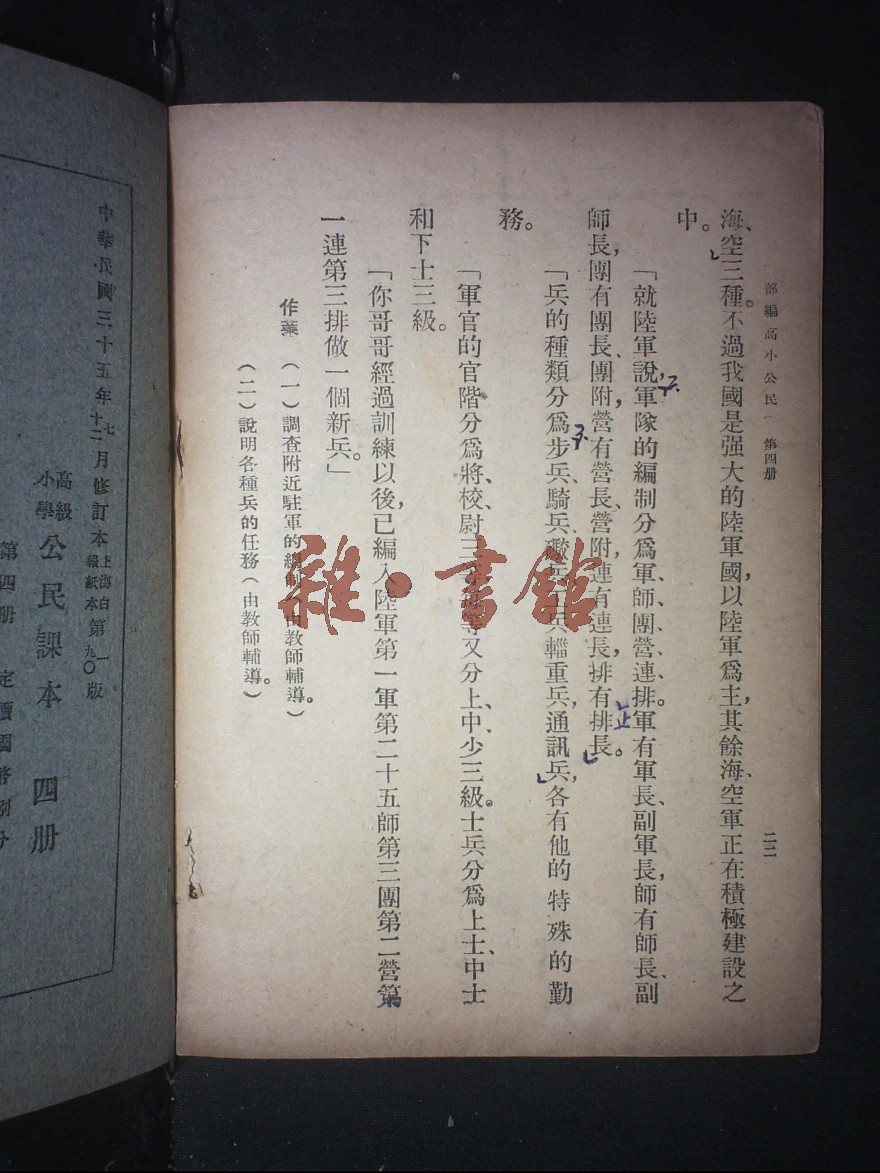 部編高小公民　第四册
二二
海、空三種。不過我國是强大的陸軍國，以陸軍爲主，其餘海、空軍正在積極建設之
中。
「就陸軍說，軍隊的編制分爲軍、師、團、營、連、排。軍有軍長、副軍長，師有師長、副
師長，團有團長、團附，營有營長、營附，連有連長，排有排長。
「兵的種類分爲步兵、騎兵、礮兵、工兵、輜重兵、通訊兵，各有他的特殊的勤
務。
「軍官的官階分爲將、校、尉三等，等又分上、中、少三級。士兵分爲上士、中士
和下士三級。
「你哥哥經過訓練以後，已編入陸軍第一軍第二十五師第三團第二營第
一連第三排做一個新兵。」
作業　（一）調查附近駐軍的編制（由教師輔導。）
（二）說明各種兵的任務（由教師輔導。）
中華民國三十五年七月修訂本上海白報紙本第一版
十二
九〇
高級小學 公民課本 四册
第四册 定價國幣
雜·書館